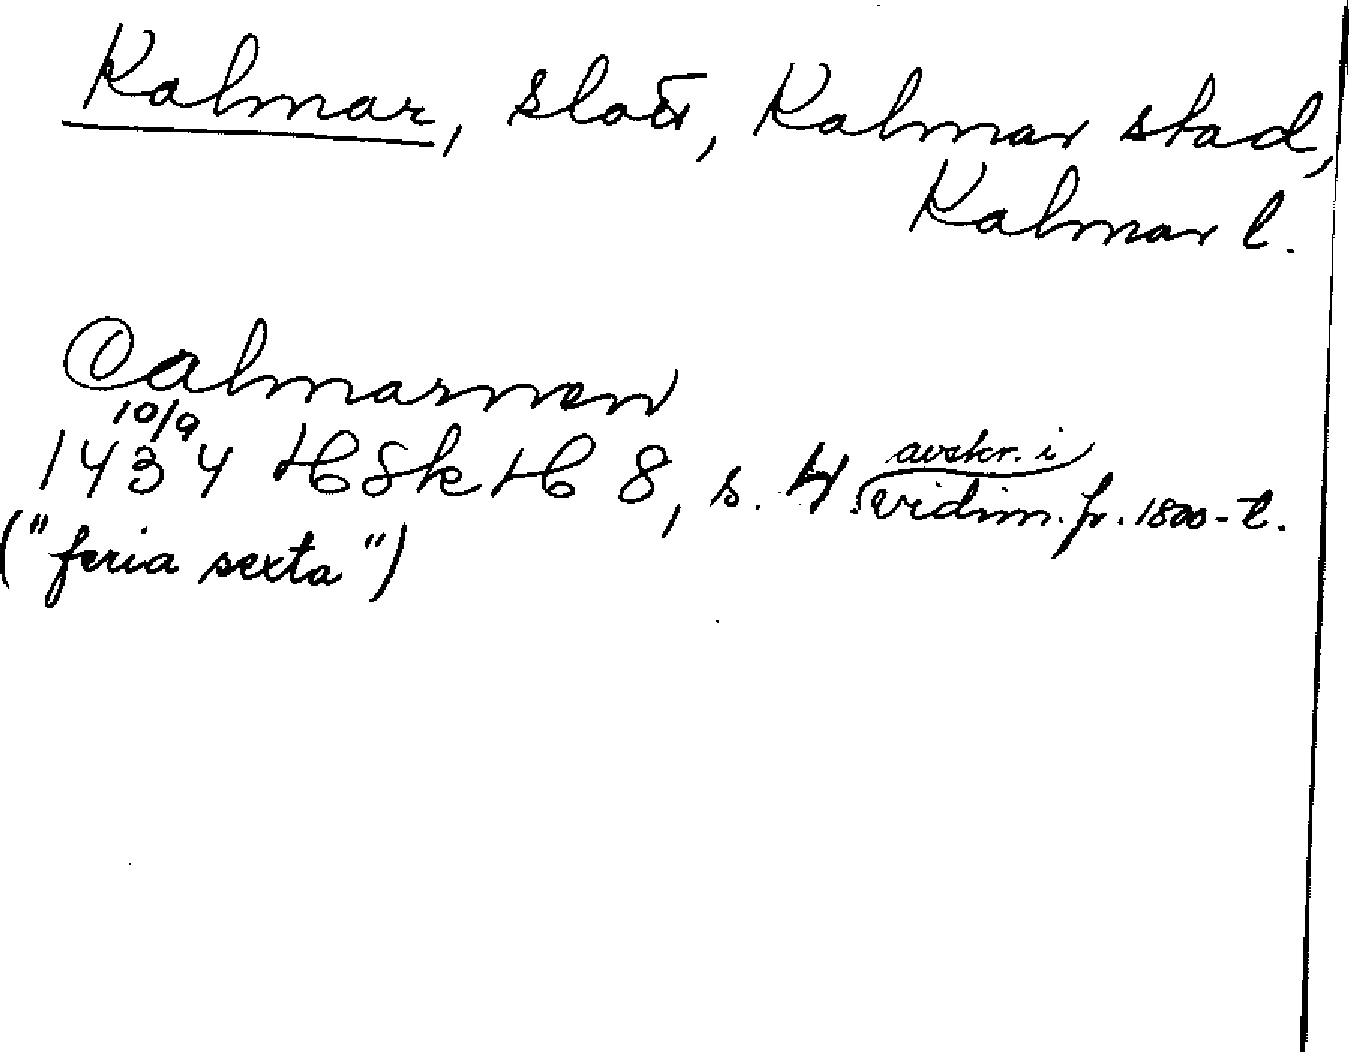 Kalmar, slott, Kalmar stad,
Kalmar l.
Calmarnen
10/9
1434 HSkH 8, s. 4 avskr. i vidim. fr. 1800-t.
("feria sexta")